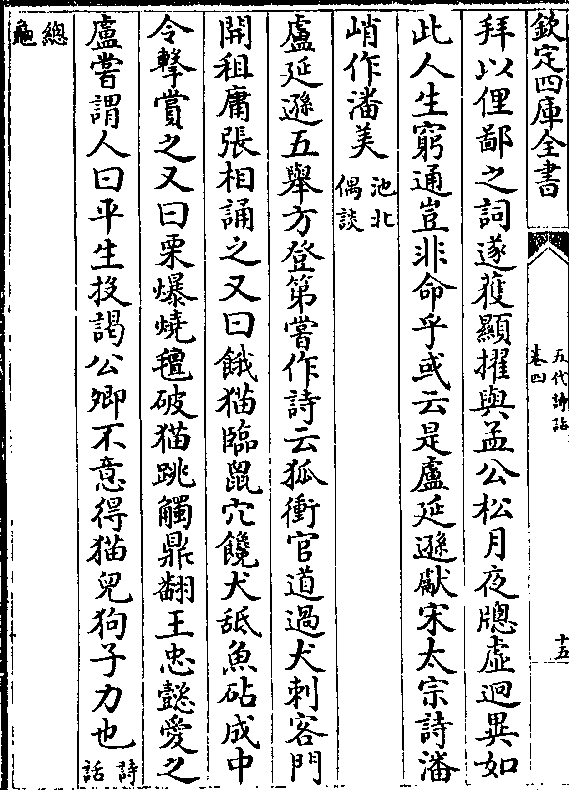 欽定四庫全書
五代詩話
卷四
十五
拜以俚鄙之詞遂獲顯擢與孟公松月夜牎虛迥異如
此人生窮通豈非命乎或云是盧延遜獻宋太宗詩潘
峭作潘美池北偶談
盧延遜五舉方登第嘗作詩云狐衝官道過犬刺客門
開租庸張相誦之又曰餓猫臨鼠穴饞犬舐魚砧成中
令擊賞之又曰栗爆燒氊破猫跳觸鼎翻王忠懿愛之
盧嘗謂人曰平生投謁公卿不意得猫兒狗子力也詩話
總龜